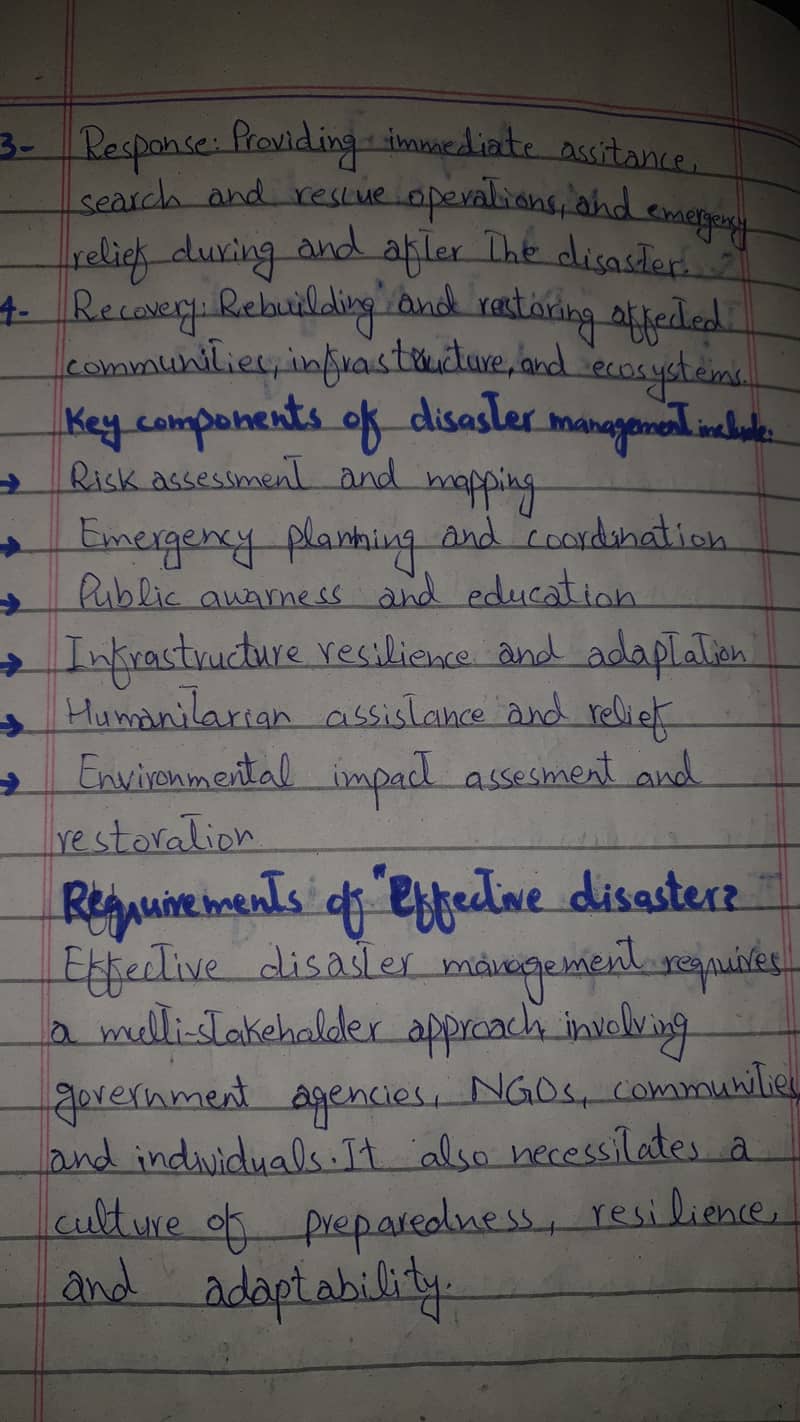 3- Response: Providing immediate assitance,
search and rescue operations, and emergency
relief during and after the disaster.
4- Recovery: Rebuilding and restoring affected
communities, infrastructure, and ecosystems.
Key components of disaster management include:
→ Risk assessment and mapping
→ Emergency planning and coordination
→ Public awarness and education
→ Infrastructure resilience and adaptation
→ Humanitarian assistance and relief
→ Environmental impact assesment and
restoration
Requirements of "Effective disaster?
Effective disaster management requires
a multi-stakeholder approach, involving
government agencies, NGOs, communities
and individuals. It also necessitates a
culture of preparedness, resilience,
and adaptability.